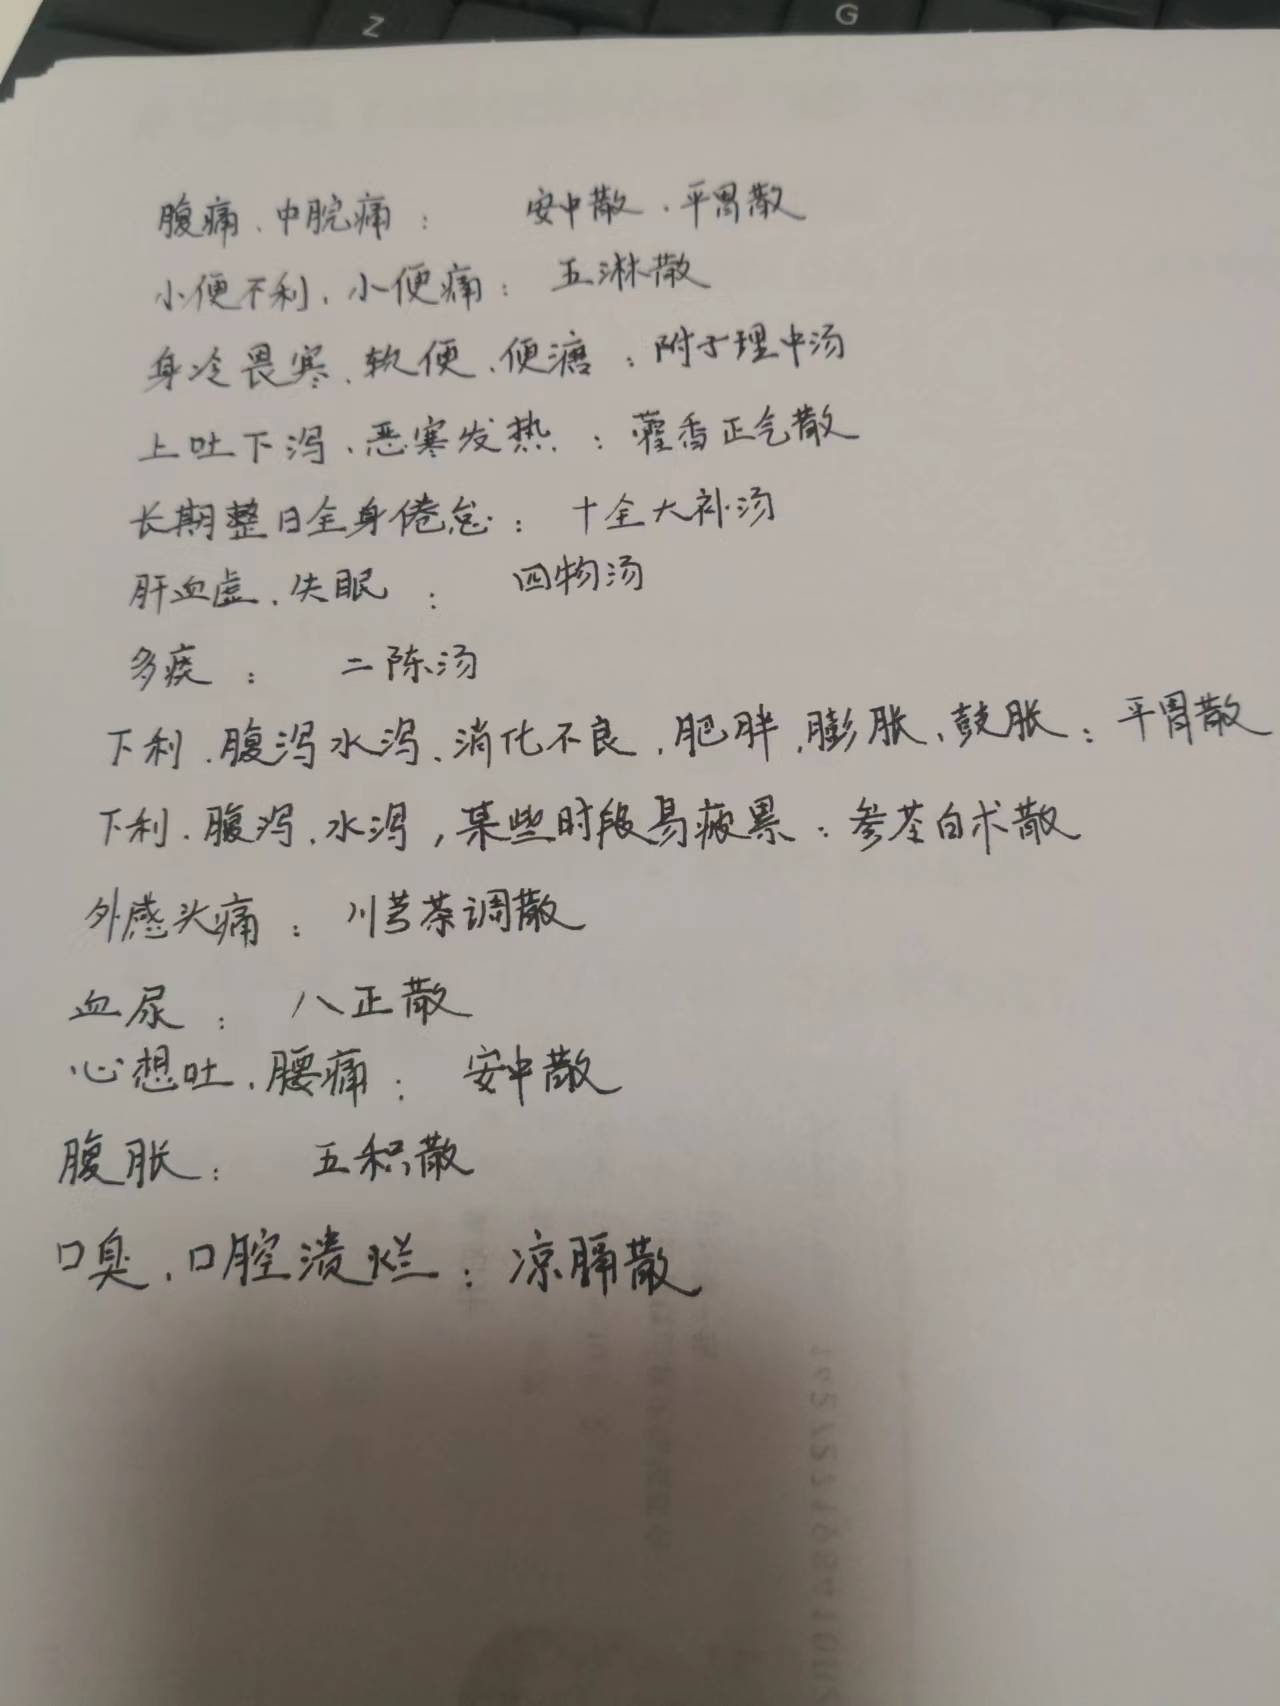 Z G
腹痛、中脘痛： 安中散、平胃散
小便不利、小便痛： 五淋散
身冷畏寒、软便、便溏：附子理中汤
上吐下泻、恶寒发热：藿香正气散
长期整日全身倦怠：十全大补汤
肝血虚、失眠： 四物汤
多痰： 二陈汤
下利、腹泻水泻、消化不良、肥胖、膨胀、鼓胀：平胃散
下利、腹泻、水泻，某些时段易疲累：参苓白术散
外感头痛：川芎茶调散
血尿： 八正散
心想吐、腰痛： 安中散
腹胀： 五积散
口臭、口腔溃烂：凉膈散